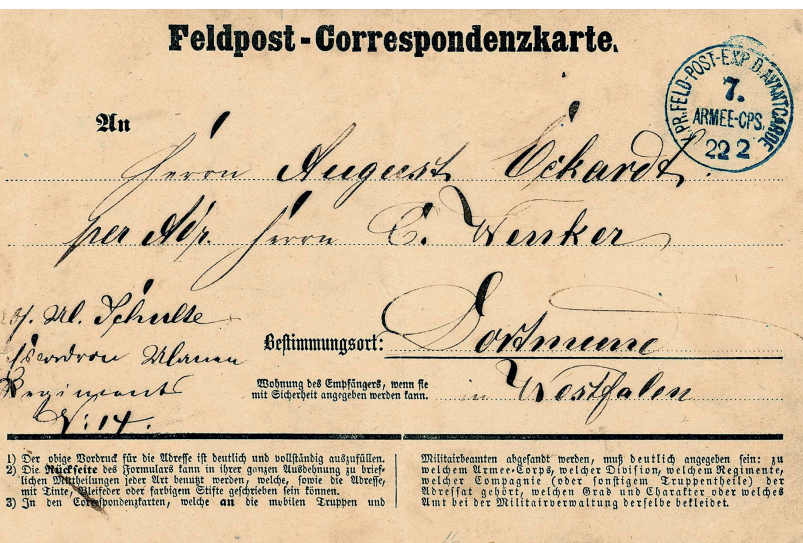 Feldpost-Correspondenzkarte.
K. PR. FELD-POST-EXP. D. AVANTGARDE
7.
ARMEE-CPS.
22 2
An
Herrn August Eckardt.
per Adr. Herrn C. Wenker
Bestimmungsort: Dortmund
Wohnung des Empfängers, wenn sie
mit Sicherheit angegeben werden kann.
in Westfalen
Ul. Schulte
Ulanen
Regiments
N: 14.
1) Der obige Vordruck für die Adresse ist deutlich und vollständig auszufüllen.
2) Die Rückseite des Formulars kann in ihrer ganzen Ausdehnung zu brief-
lichen Mittheilungen jeder Art benutzt werden, welche, sowie die Adresse,
mit Tinte, Bleifeder oder farbigem Stifte geschrieben sein können.
3) In den Correspondenzkarten, welche an die mobilen Truppen und
Militairbeamten abgesandt werden, muß deutlich angegeben sein: zu
welchem Armee-Corps, welcher Division, welchem Regimente,
welcher Compagnie (oder sonstigem Truppentheile) der
Adressat gehört, welchen Grad und Charakter oder welches
Amt bei der Militairverwaltung derselbe bekleidet.